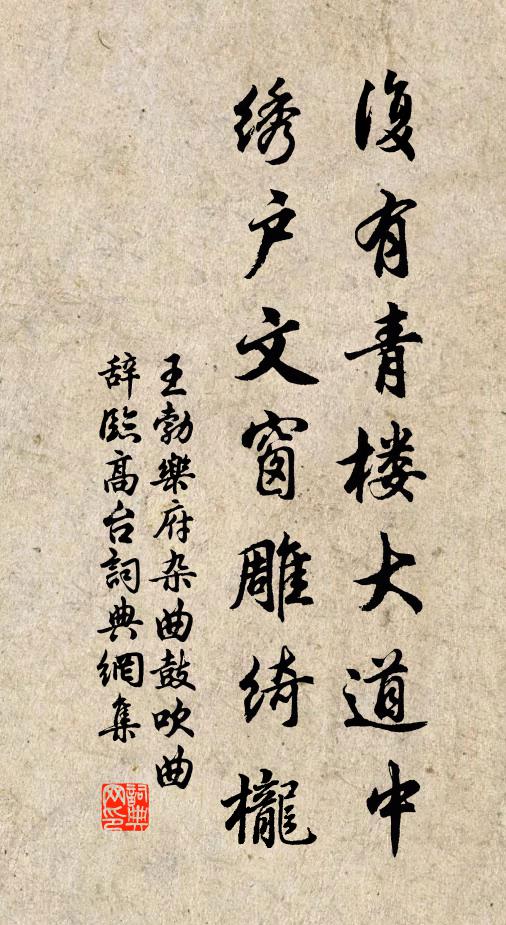 復有青楼大道中
绣户文窗雕绮櫳
王勃樂府杂曲鼓吹曲
辞臨高台詞典網集
詞典网印